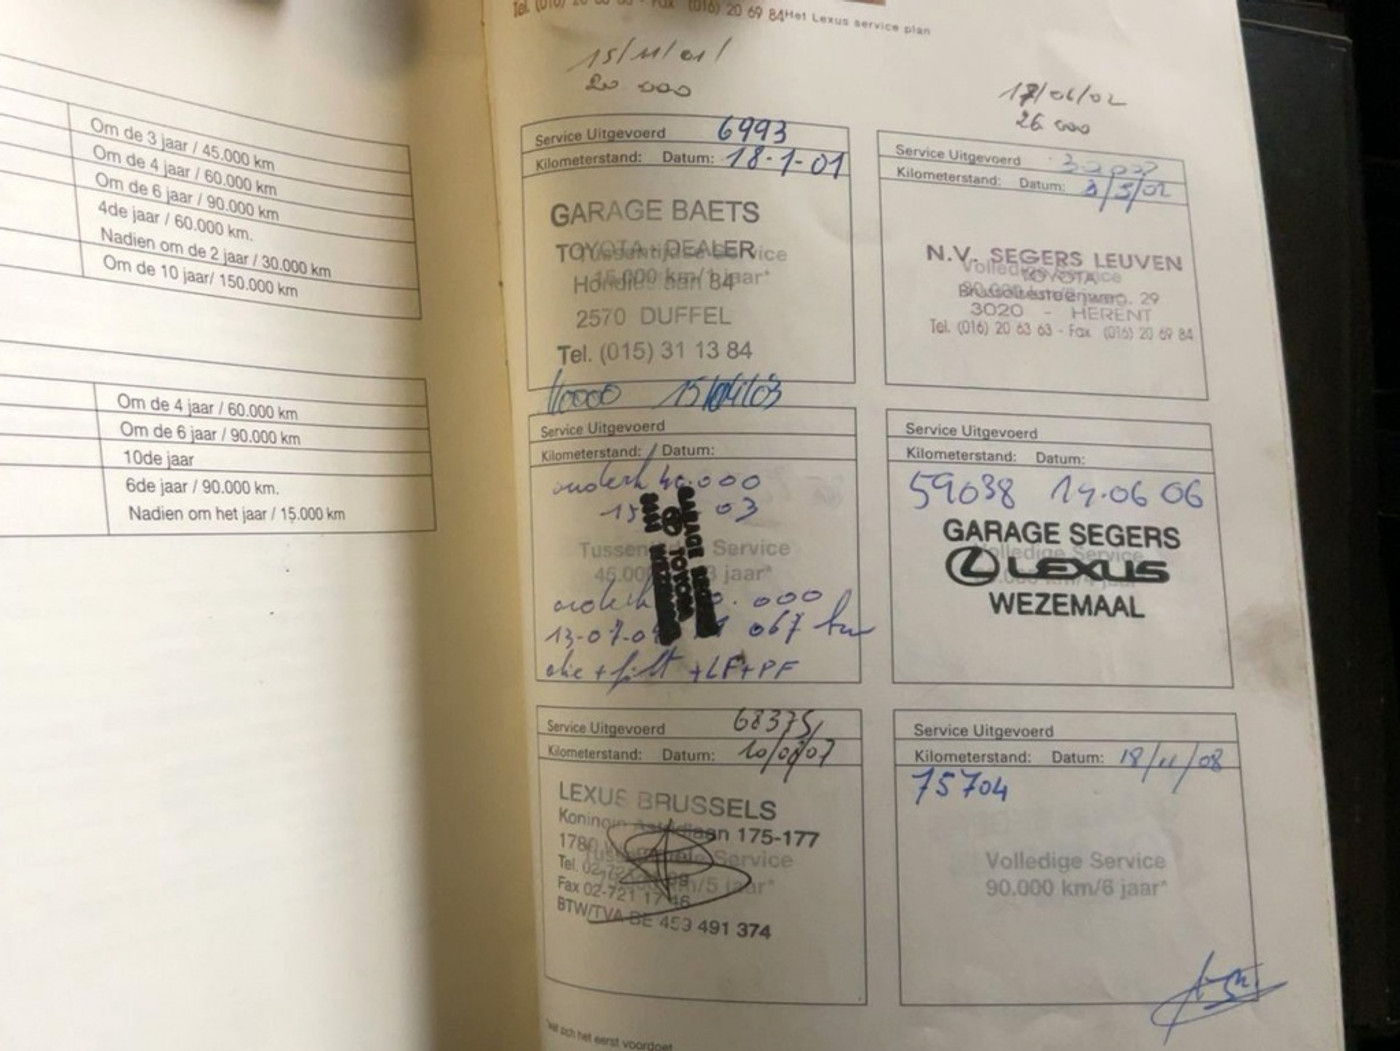 Om de 3 jaar / 45.000 km
Om de 4 jaar / 60.000 km
Om de 6 jaar / 90.000 km
4de jaar / 60.000 km.
Nadien om de 2 jaar / 30.000 km
Om de 10 jaar/ 150.000 km
Om de 4 jaar / 60.000 km
Om de 6 jaar / 90.000 km
10de jaar
6de jaar / 90.000 km.
Nadien om het jaar / 15.000 km
Fax (016) 20 69 84
Het Lexus service plan
15/11/01/
20 000
17/06/02
26 000
Service Uitgevoerd 6993
Kilometerstand: Datum: 18-1-01
GARAGE BAETS
TOYOTA - DEALER
15.000 km/1 jaar*
84
2570 DUFFEL
Tel. (015) 31 13 84
Service Uitgevoerd
Kilometerstand: Datum:
N.V. SEGERS LEUVEN
Volledige Service
TOYOTA
29
3020 - HERENT
Tel. (016) 20 63 63 - Fax (016) 20 69 84
40000
Service Uitgevoerd
Kilometerstand: Datum:
40.000
03
Service
jaar*
GARAGE
TOYOTA
13-07-0
067 km
olie + filt + LF + PF
Service Uitgevoerd
Kilometerstand: Datum:
59038 14.06 06
GARAGE SEGERS
Volledige Service
LEXUS
WEZEMAAL
Service Uitgevoerd 68375
Kilometerstand: Datum:
LEXUS BRUSSELS
Koningin Astridlaan 175-177
1780
Service
km/5 jaar*
Tel. 02-
Fax 02-721 17 46
BTW/TVA BE 453 491 374
Service Uitgevoerd
Kilometerstand: Datum: 18/11/08
75704
Volledige Service
90.000 km/6 jaar*
zich het eerst voordoet